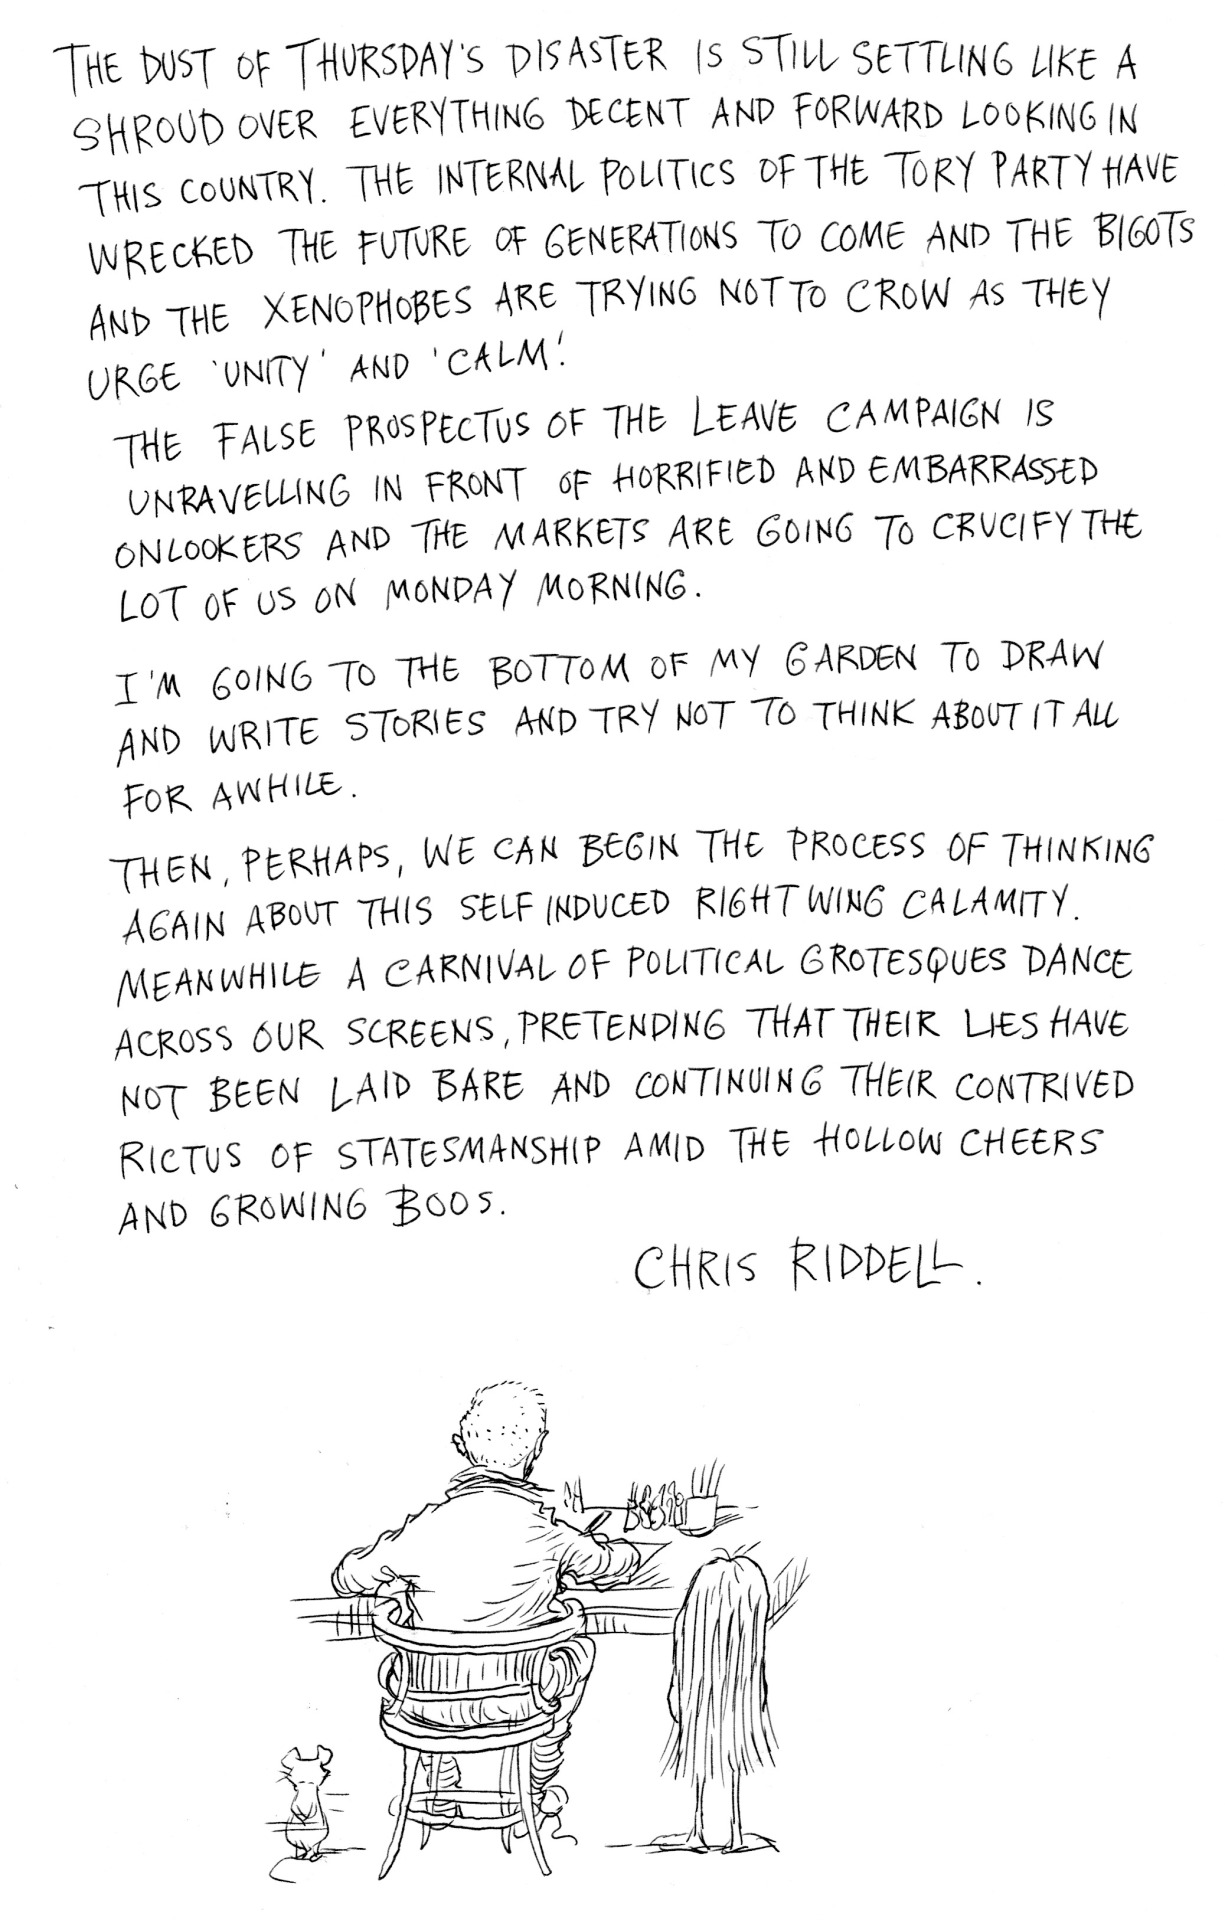 THE DUST OF THURSDAY'S DISASTER IS STILL SETTLING LIKE A
SHROUD OVER EVERYTHING DECENT AND FORWARD LOOKING IN
THIS COUNTRY. THE INTERNAL POLITICS OF THE TORY PARTY HAVE
WRECKED THE FUTURE OF GENERATIONS TO COME AND THE BIGOTS
AND THE XENOPHOBES ARE TRYING NOT TO CROW AS THEY
URGE 'UNITY' AND 'CALM'.
THE FALSE PROSPECTUS OF THE LEAVE CAMPAIGN IS
UNRAVELLING IN FRONT OF HORRIFIED AND EMBARRASSED
ONLOOKERS AND THE MARKETS ARE GOING TO CRUCIFY THE
LOT OF US ON MONDAY MORNING.
I'M GOING TO THE BOTTOM OF MY GARDEN TO DRAW
AND WRITE STORIES AND TRY NOT TO THINK ABOUT IT ALL
FOR AWHILE.
THEN, PERHAPS, WE CAN BEGIN THE PROCESS OF THINKING
AGAIN ABOUT THIS SELF INDUCED RIGHT WING CALAMITY.
MEANWHILE A CARNIVAL OF POLITICAL GROTESQUES DANCE
ACROSS OUR SCREENS, PRETENDING THAT THEIR LIES HAVE
NOT BEEN LAID BARE AND CONTINUING THEIR CONTRIVED
RICTUS OF STATESMANSHIP AMID THE HOLLOW CHEERS
AND GROWING BOOS.
CHRIS RIDDELL.